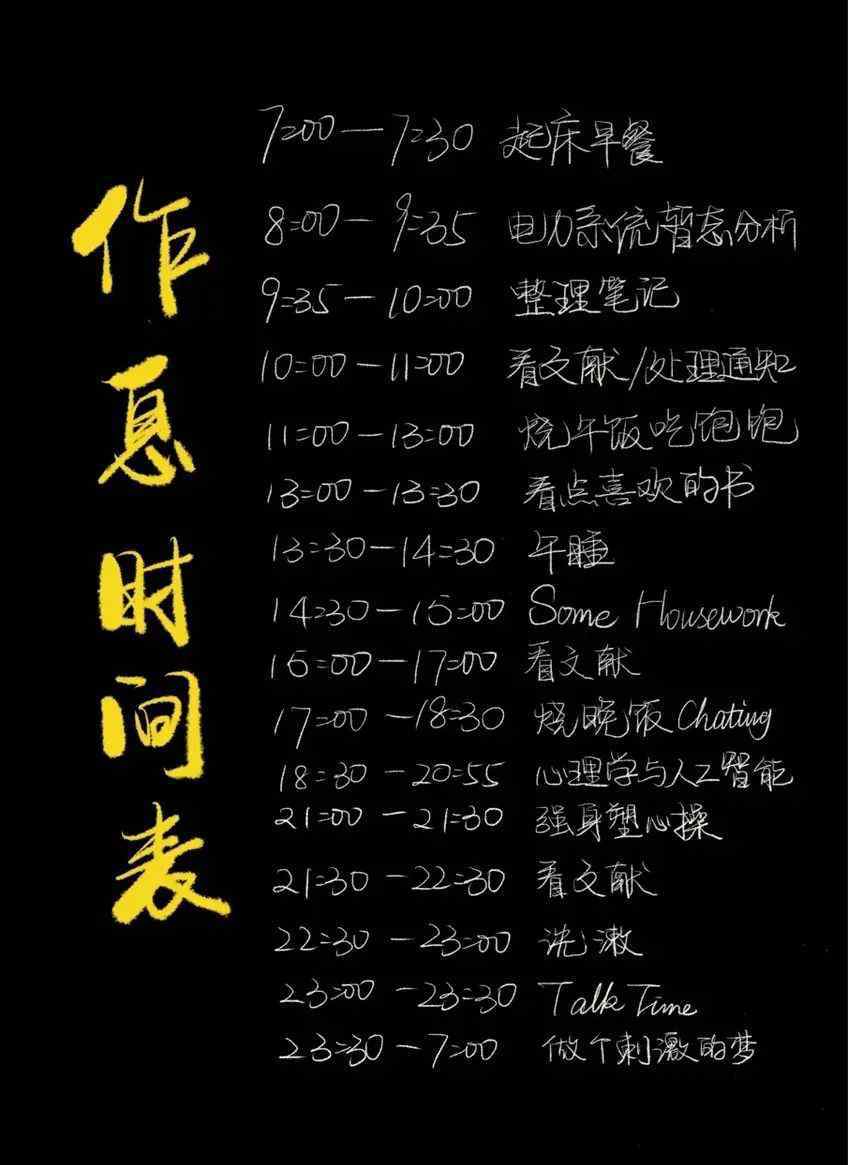 作息时间表
7:00-7:30 起床早餐
8:00-9:35 电力系统暂态分析
9:35-10:00 整理笔记
10:00-11:00 看文献/处理通知
11:00-13:00 烧午饭吃饱饱
13:00-13:30 看点喜欢的书
13:30-14:30 午睡
14:30-15:00 Some Housework
15:00-17:00 看文献
17:00-18:30 烧晚饭 Chating
18:30-20:55 心理学与人工智能
21:00-21:30 强身塑心操
21:30-22:30 看文献
22:30-23:00 洗漱
23:00-23:30 Talk Time
23:30-7:00 做个刺激的梦